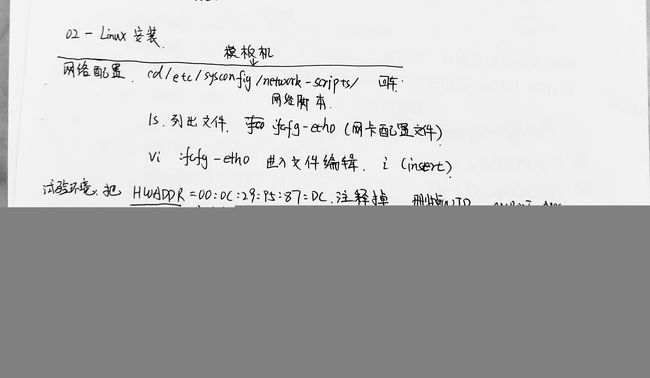 02-Linux 安装.
模板机
网络配置. cd/etc/sysconfig/network-scripts/ 回车.
网络脚本.
ls. 列出文件. ifcfg-eth0 (网卡配置文件)
vi ifcfg-eth0 进入文件编辑. i (insert)
试验环境. 把 HWADDR=00:0C:29:95:87:DC. 注释掉 删掉UUID